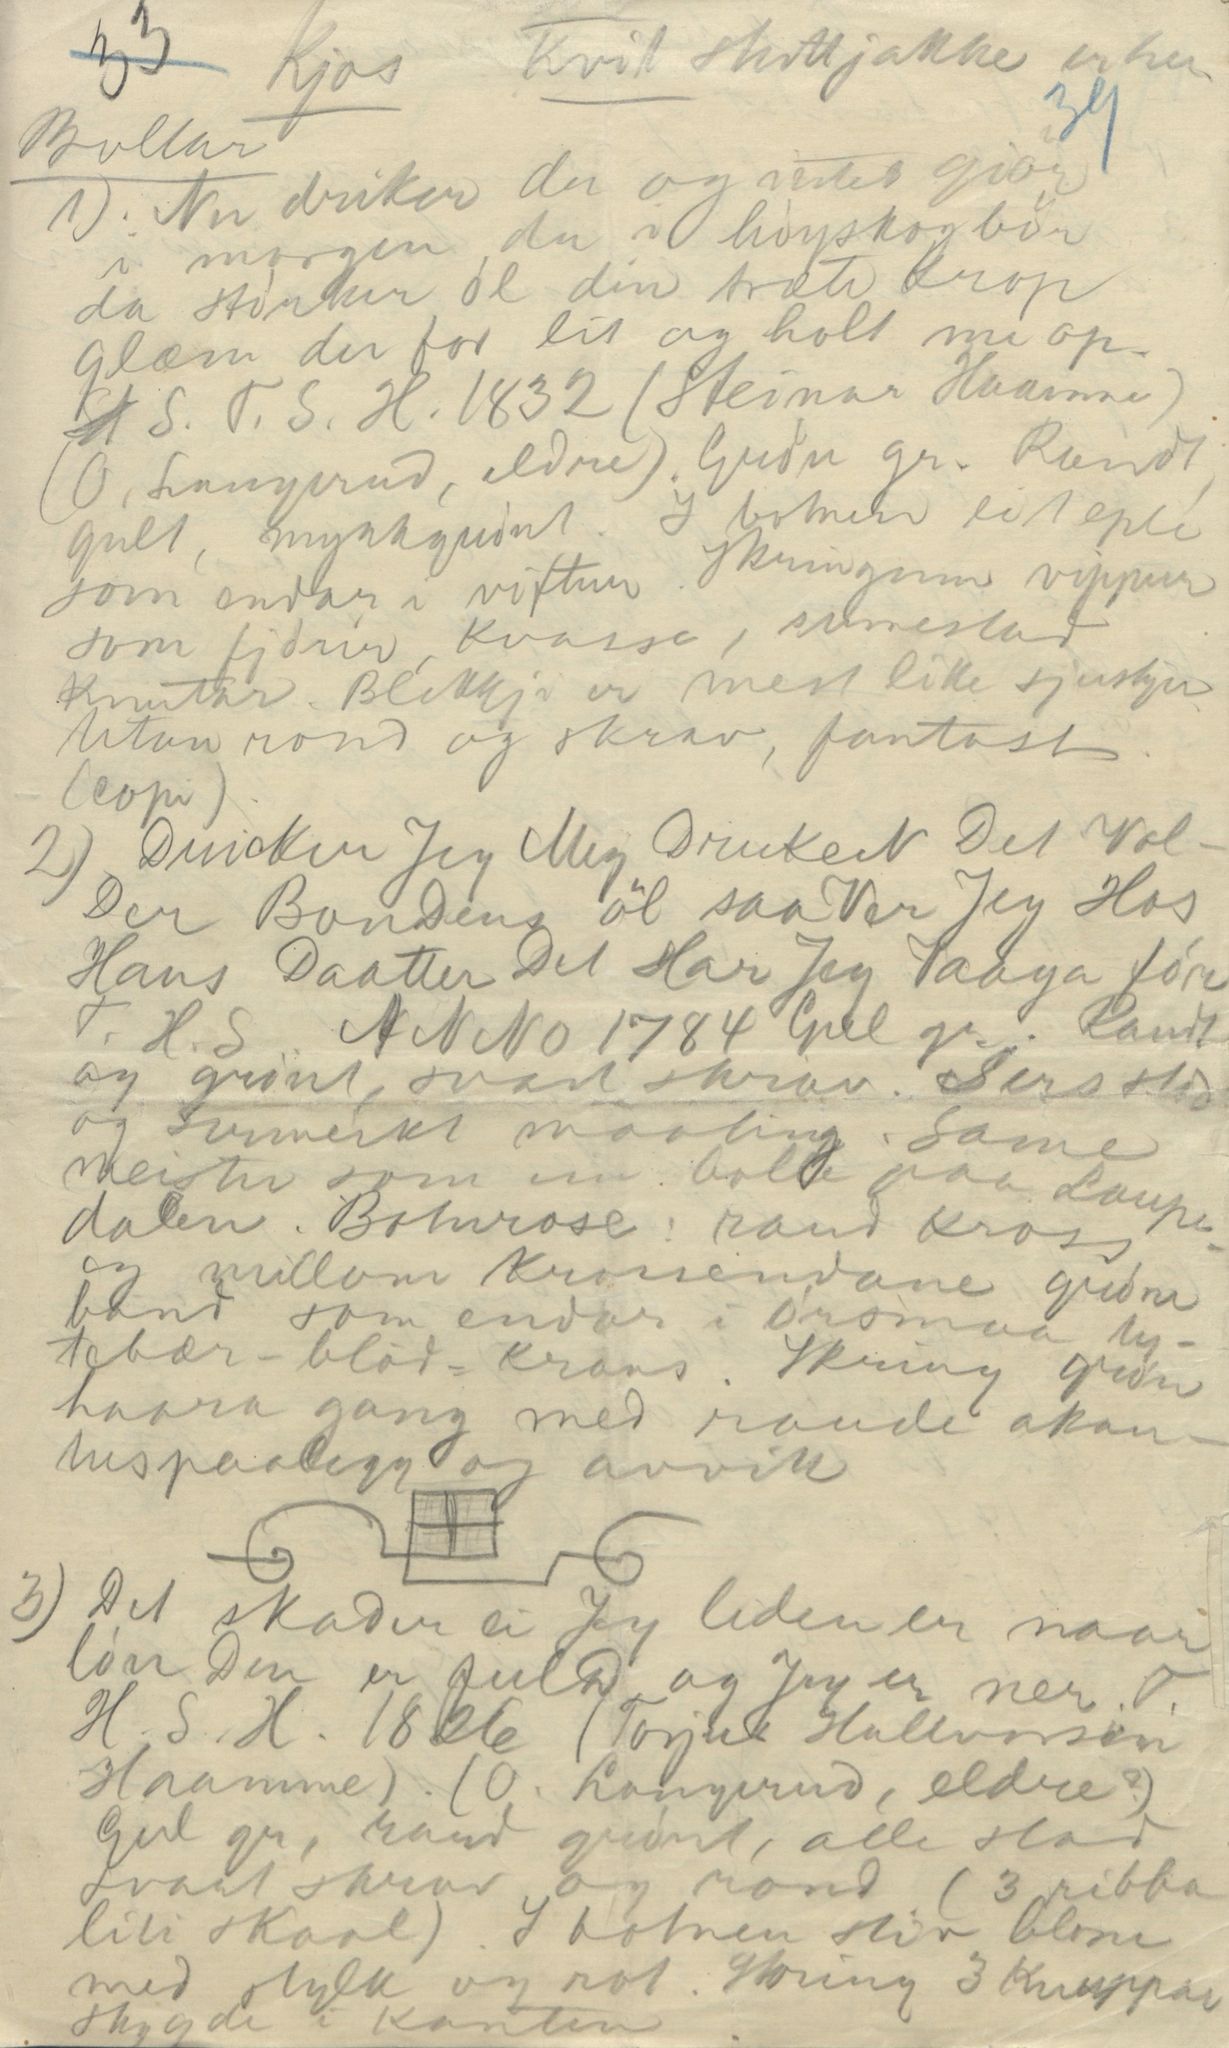 33 Kjos Kvit stuttjakke er her
34
Bollar
1). Nu driker du og intet giør
i morgen du i høyskog bør
da størker øl din træte krop
glæm der for lit og holt me op.
S. T. S. H. 1832 (Steinar Haamme)
(O. Langerud, eldre). Grøn gr. Raudt,
gult, mykkgrønt. I botnen eit eple
som endar i viftur. Skringum vippur
som fjører, kvasse, sumestad
knutar. Blekkji er mest like
Utan rond og skrav, fantast.
(copi).
2) Dricker Jeg Meg DruckeN Det Vol-
Der BonDens öl saa Ver Jeg Hos
Hans Daatter Det Har Jeg Vaaga før
T. H. S. ANNO 1784 Gul gr. Raudt
og grønt, svart skrav. Sers stød
og sermerkt maaling. Same
meister som ein bolle paa Laupe-
dalen. Botnrose: raud kross
og millom krossendane grøne
band som endar i ørsmaa ty-
tebær-blød-krans. Skring grøn
haara gang med raude akan-
tuspaalegg og avvik
3) Det skader ei Jeg liden er naar
løn Den er fulD og Jeg er ner. T.
H. S. H. 1826 (Torjus Hallvorsen
Haamme). (O. Langerud, eldre?)
Gul gr, raud grønt, alle stad
svart skrav og rond (3 ribba
liti skaal). I botnen stiv blome
med stylk og rot. Skring 3 Knuppar
skygde i kanten.